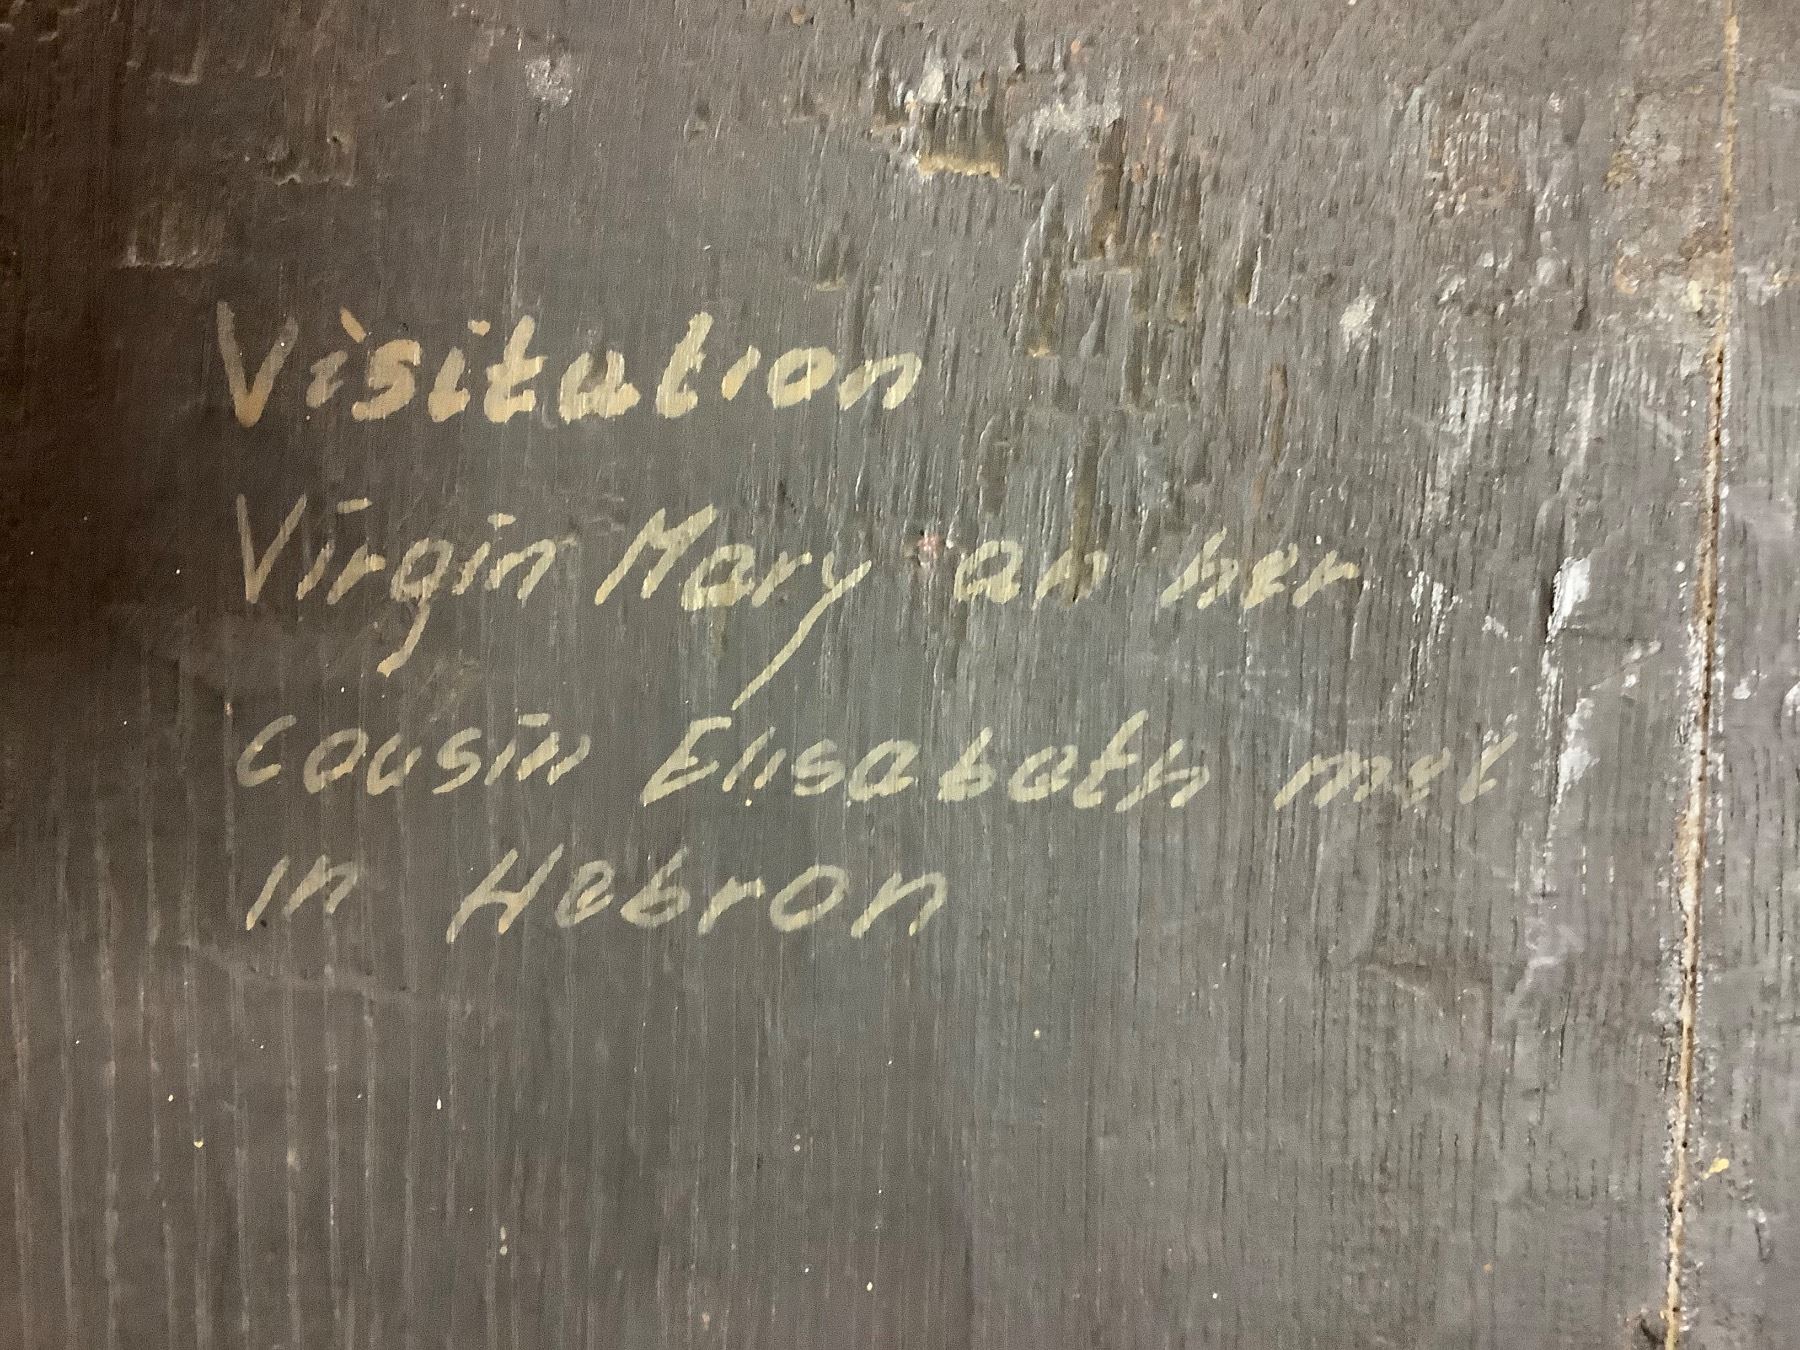 Visitation
Virgin Mary an her
cousin Elisabeth met
in Hebron